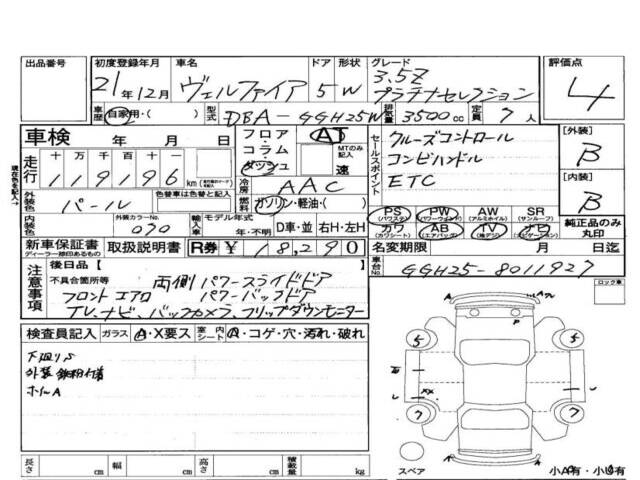 出品番号
初度登録年月 21年12月
車名 ヴェルファイア
ドア 5
形状 W
グレード 3.5Z
プラチナセレクション
評価点 4
車歴 自家用・( )
型式 DBA-GGH25W
排気量 3500cc
定員 7人
車検 年 月 日
フロア
コラム
ダッシュ
AT
MTのみ記入
速
セールスポイント
クルーズコントロール
コンビハンドル
ETC
[外装] B
[内装] B
現在色を記入→
走行 十 万 千 百 十 一
119196 km
冷房 AAC
外装色 パール
色替車は色替と記入
燃料 ガソリン・軽油・( )
内装色
外装カラーNo. 070
輸入車
モデル年式 年・不明
D車・並 右H・左H
PS (パワステ)
PW (パワーウィンド)
AW (アルミホイル)
SR (サンルーフ)
カワ (カワシート)
AB (エアバッグ)
TV
ナビ
純正品のみ丸印
新車保証書
ディーラー捺印あるもの
取扱説明書
R券 ¥18,290
名変期限 月 日迄
車台No. GGH25-8011927
注意事項
後日品[ ]
不具合箇所等 両側パワースライドドア
フロントエアロ パワーバックドア
TV.ナビ、バックカメラ、フリップダウンモニター
ロック車
検査員記入
ガラス A・X要ス
室内シート A・コゲ・穴・汚れ・破れ
下廻りS
外装鉄粉付着
ホイールA
長さ cm
幅 cm
高さ cm
積載量 kg
A
P
5
5
XX
7
7
スペア
A
小A有・小U有